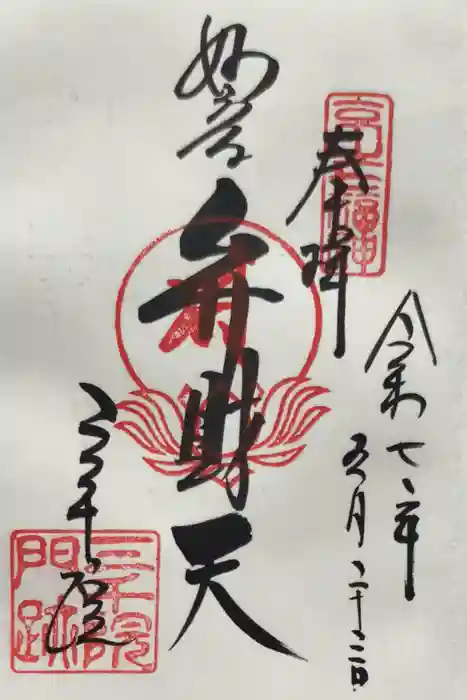 奉拝
令和七年
五月二十三日
妙音
弁財天
三千院
三千院
門跡